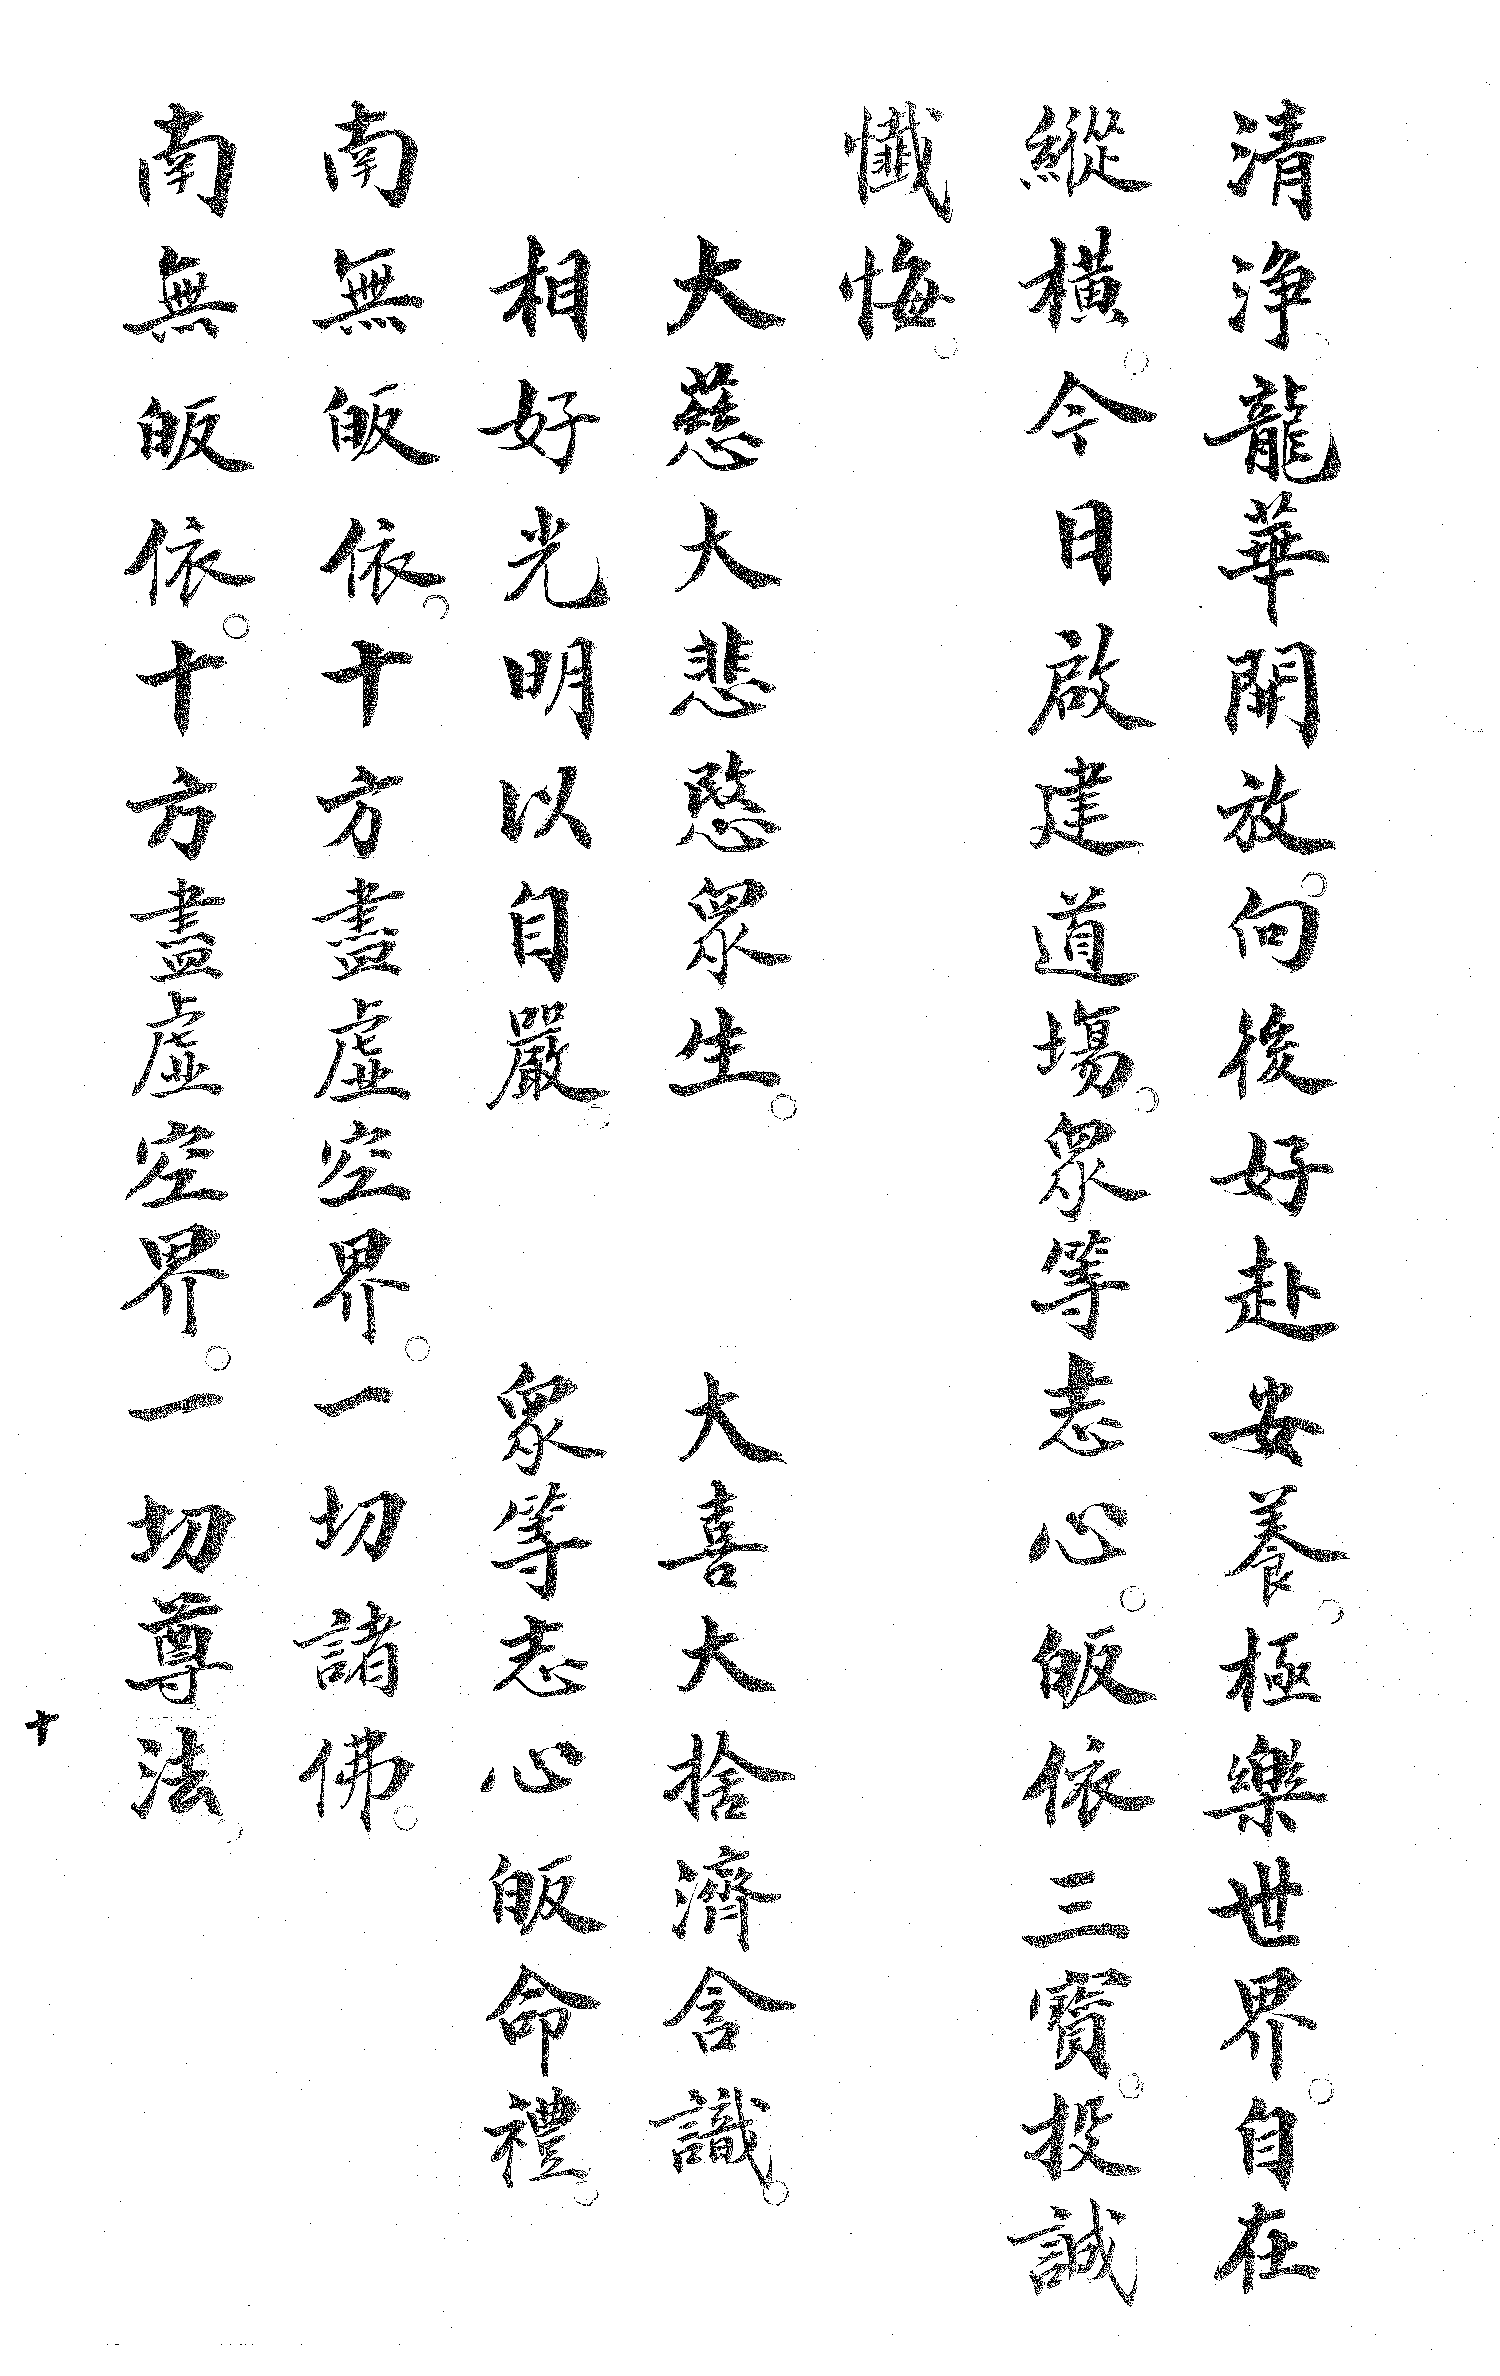 清淨龍華開放。向後好赴安養。極樂世界。自在
縱橫。今日啟建道場。眾等志心。皈依三寶。投誠
懺悔。
大慈大悲愍眾生。　大喜大捨濟含識。
相好光明以自嚴。　眾等志心皈命禮。
南無皈依。十方盡虛空界。一切諸佛。
南無皈依。十方盡虛空界。一切尊法。
十